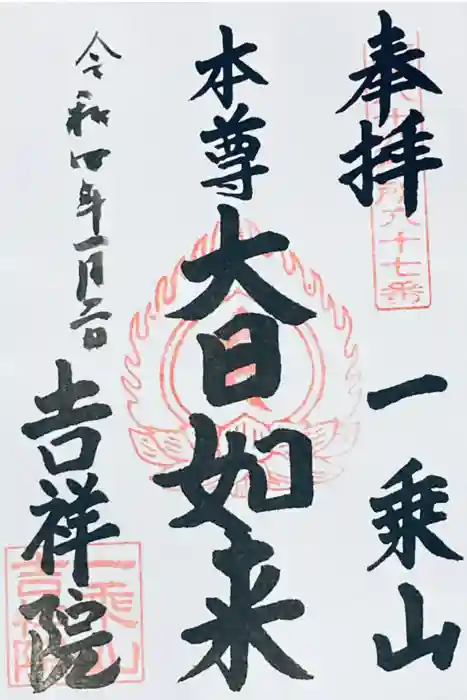 奉拝
一乗山
本尊
大日如来
令和四年一月二日
吉祥院
所八十七番
一乗山
吉祥院